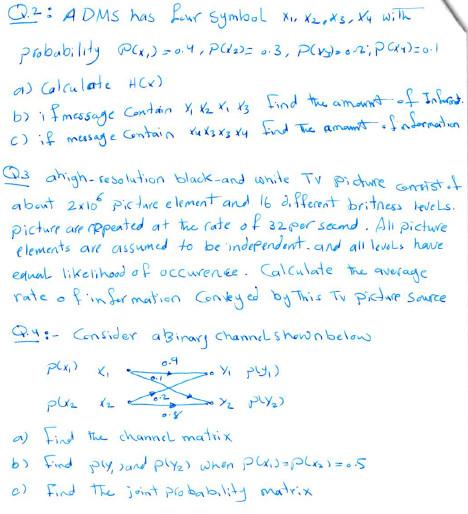 Q.2: A DMS has four symbol x₁, x₂, x₃, x₄ with
probability P(x₁)=0.4, P(x₂)= 0.3, P(x₃)=0.2, P(x₄)=0.1
a) Calculate H(x)
b) if message Contain x₁ x₂ x₁ x₃ find the amount of Inform.
c) if message Contain x₄ x₃ x₃ x₄ find The amount of information
Q.3 ahigh-resolution black-and white TV picture consist of
about 2x10⁶ picture element and 16 different britness levels.
picture are repeated at the rate of 32 per second. All picture
elements are assumed to be independent. and all levels have
equal likelihood of occurence. Calculate the average
rate of information Conveyed by This TV picture source
Q.4:- Consider a Binary Channel shown below
P(x₁) x₁ 0.9 y₁ P(y₁)
0.1
P(x₂ x₂ 0.2 y₂ P(y₂)
0.8
a) Find the channel matrix
b) Find P(y₁) and P(y₂) when P(x₁)=P(x₂)=0.5
c) Find The joint probability matrix